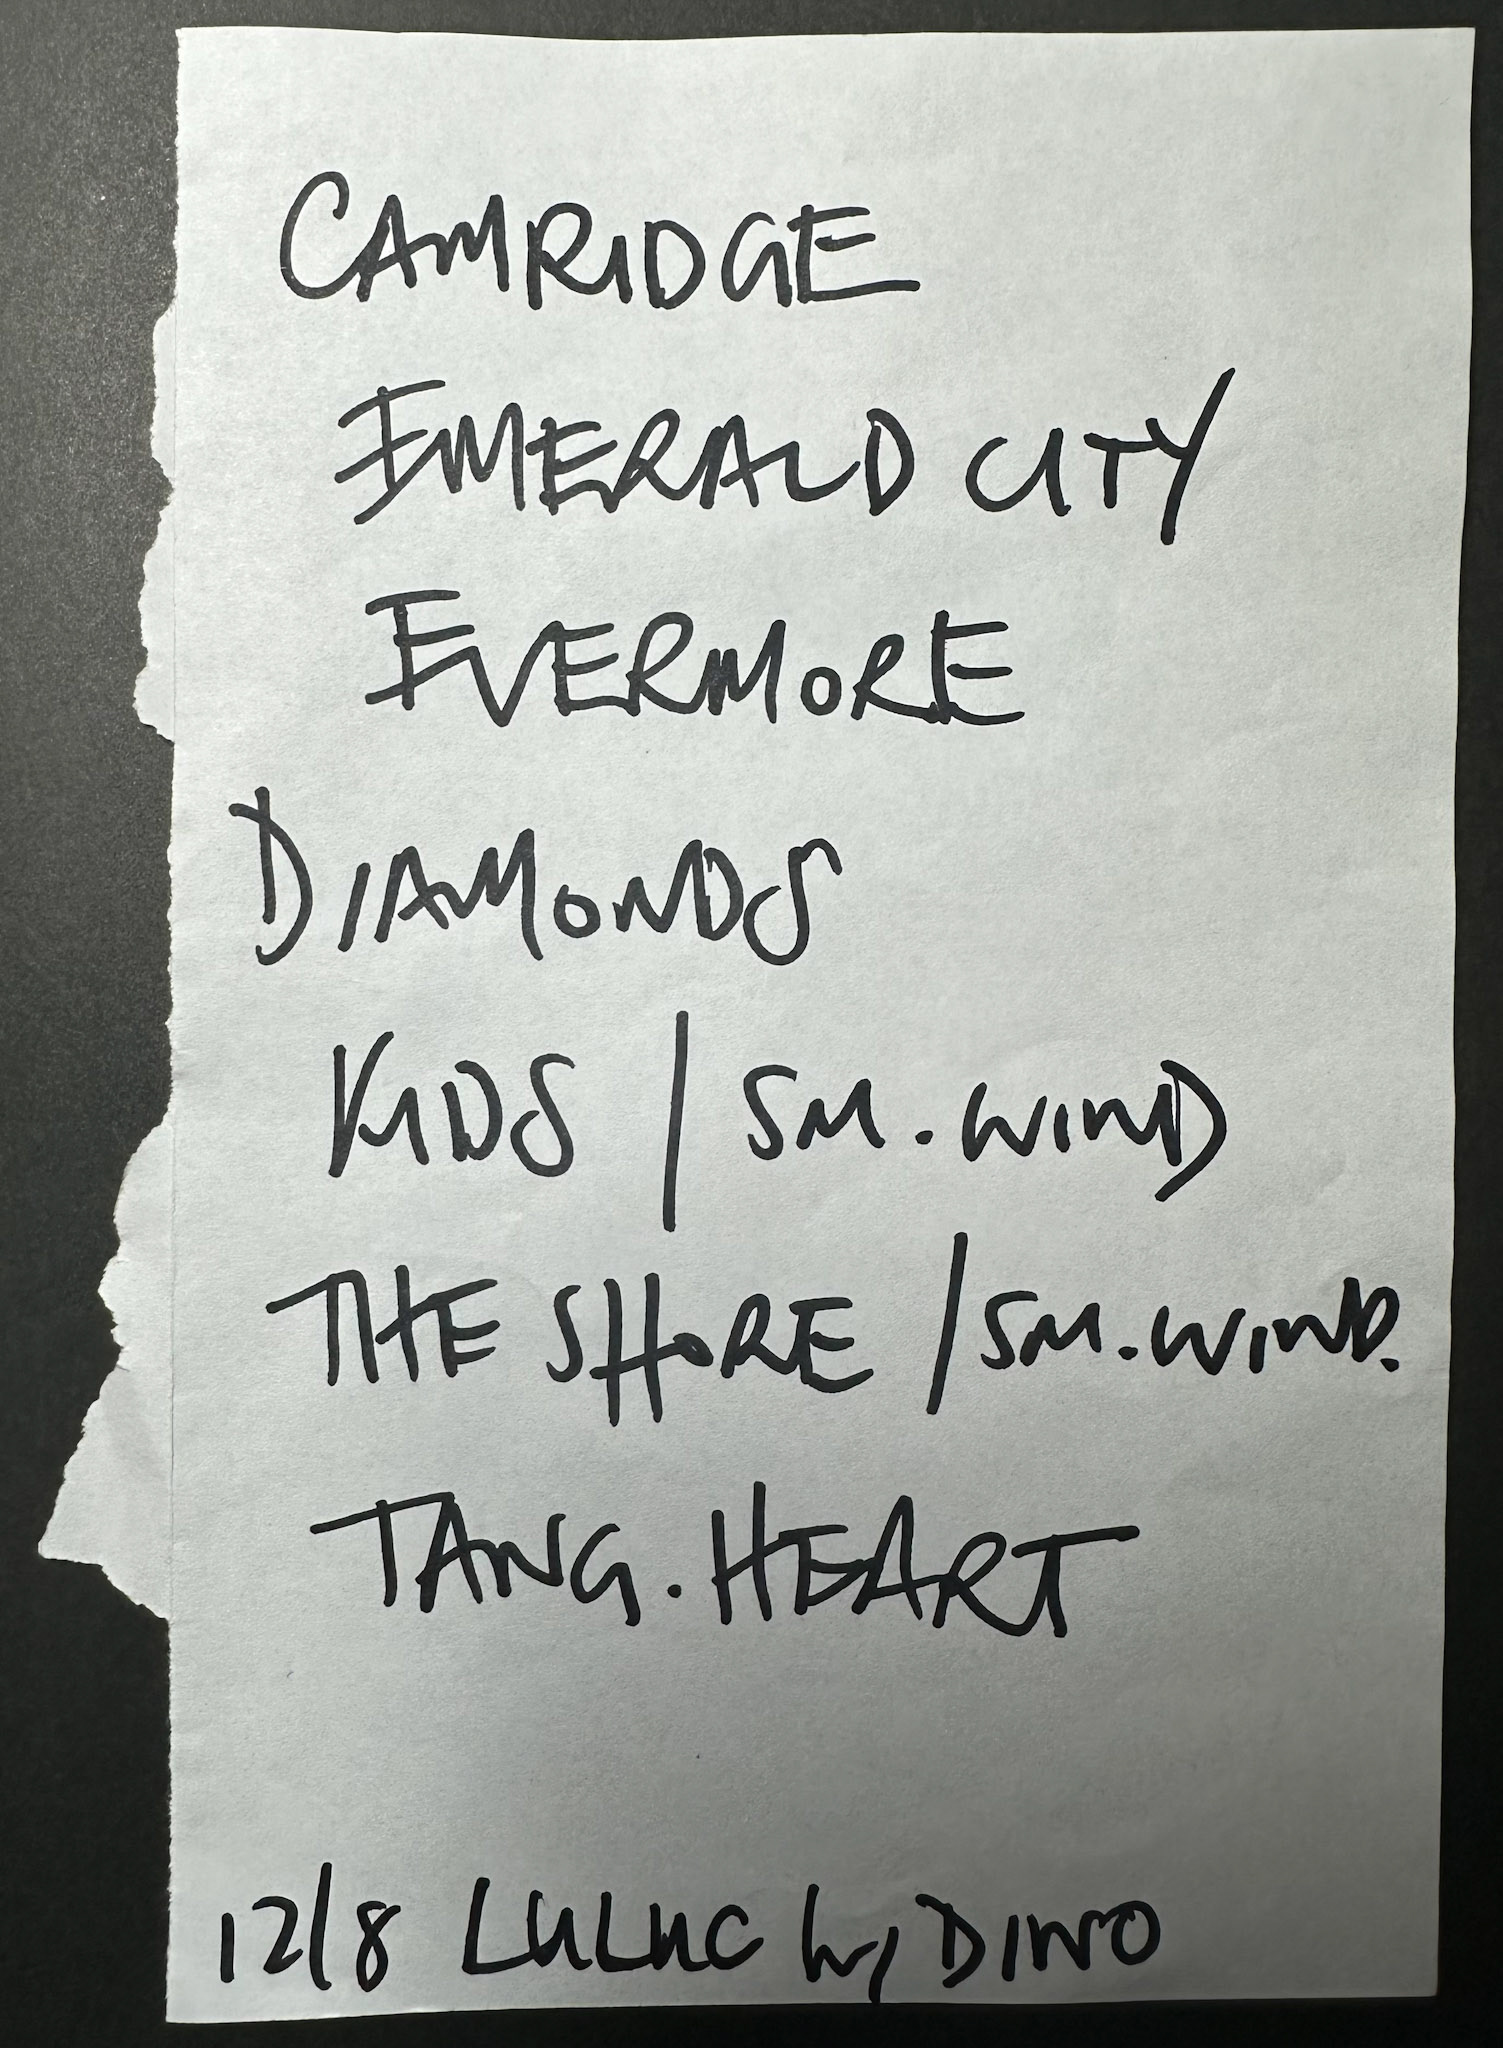 CAMRIDGE
EMERALD CITY
EVERMORE
DIAMONDS
KIDS / SM. WIND
THE SHORE / SM. WIND.
TANG. HEART
12/8 LULUC w/ DINO